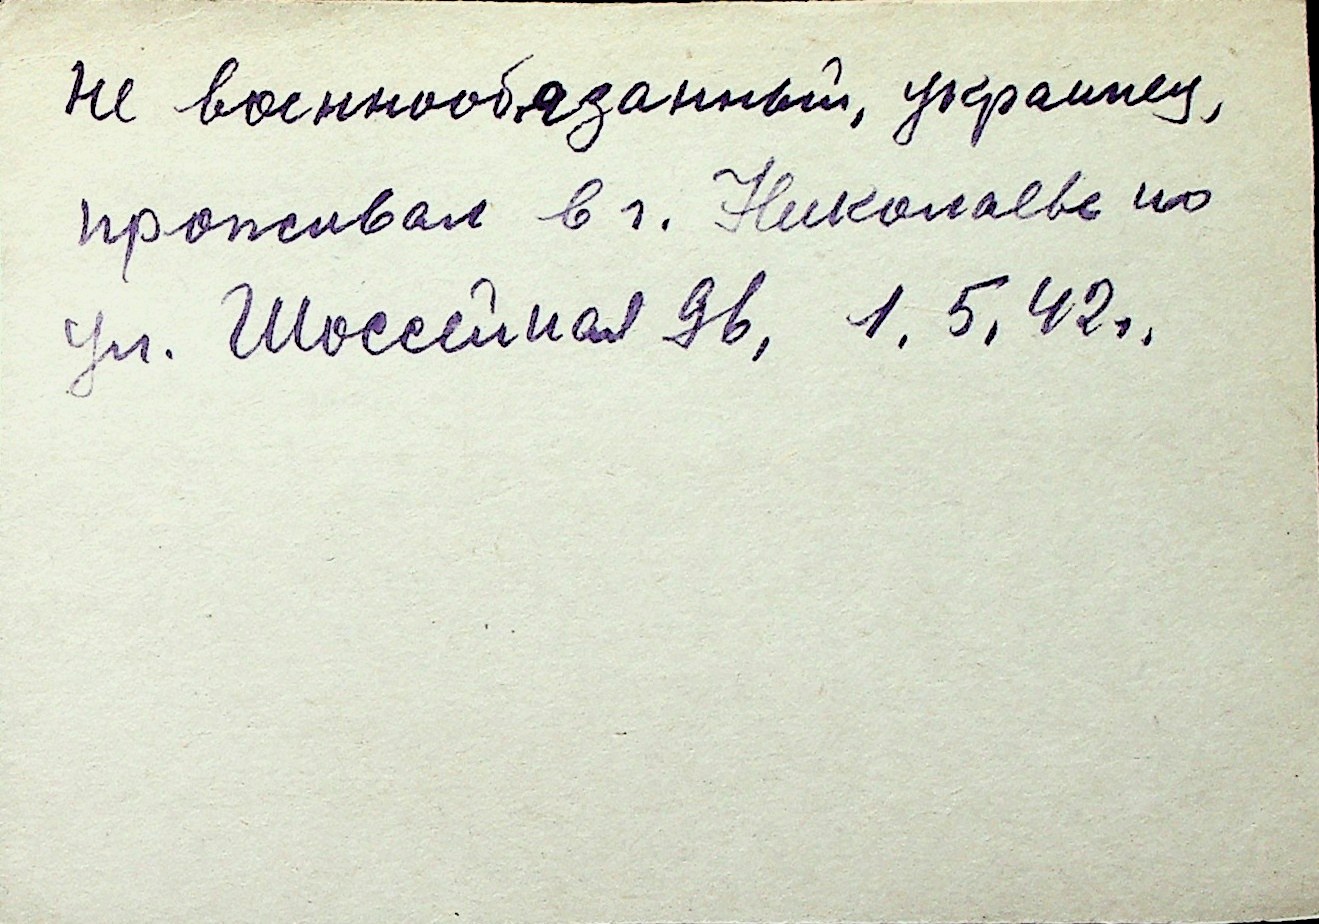 Не военнообязанный, украинец,
проживал в г. Николаеве по
ул. Шоссейная 9в, 1.5.42г.